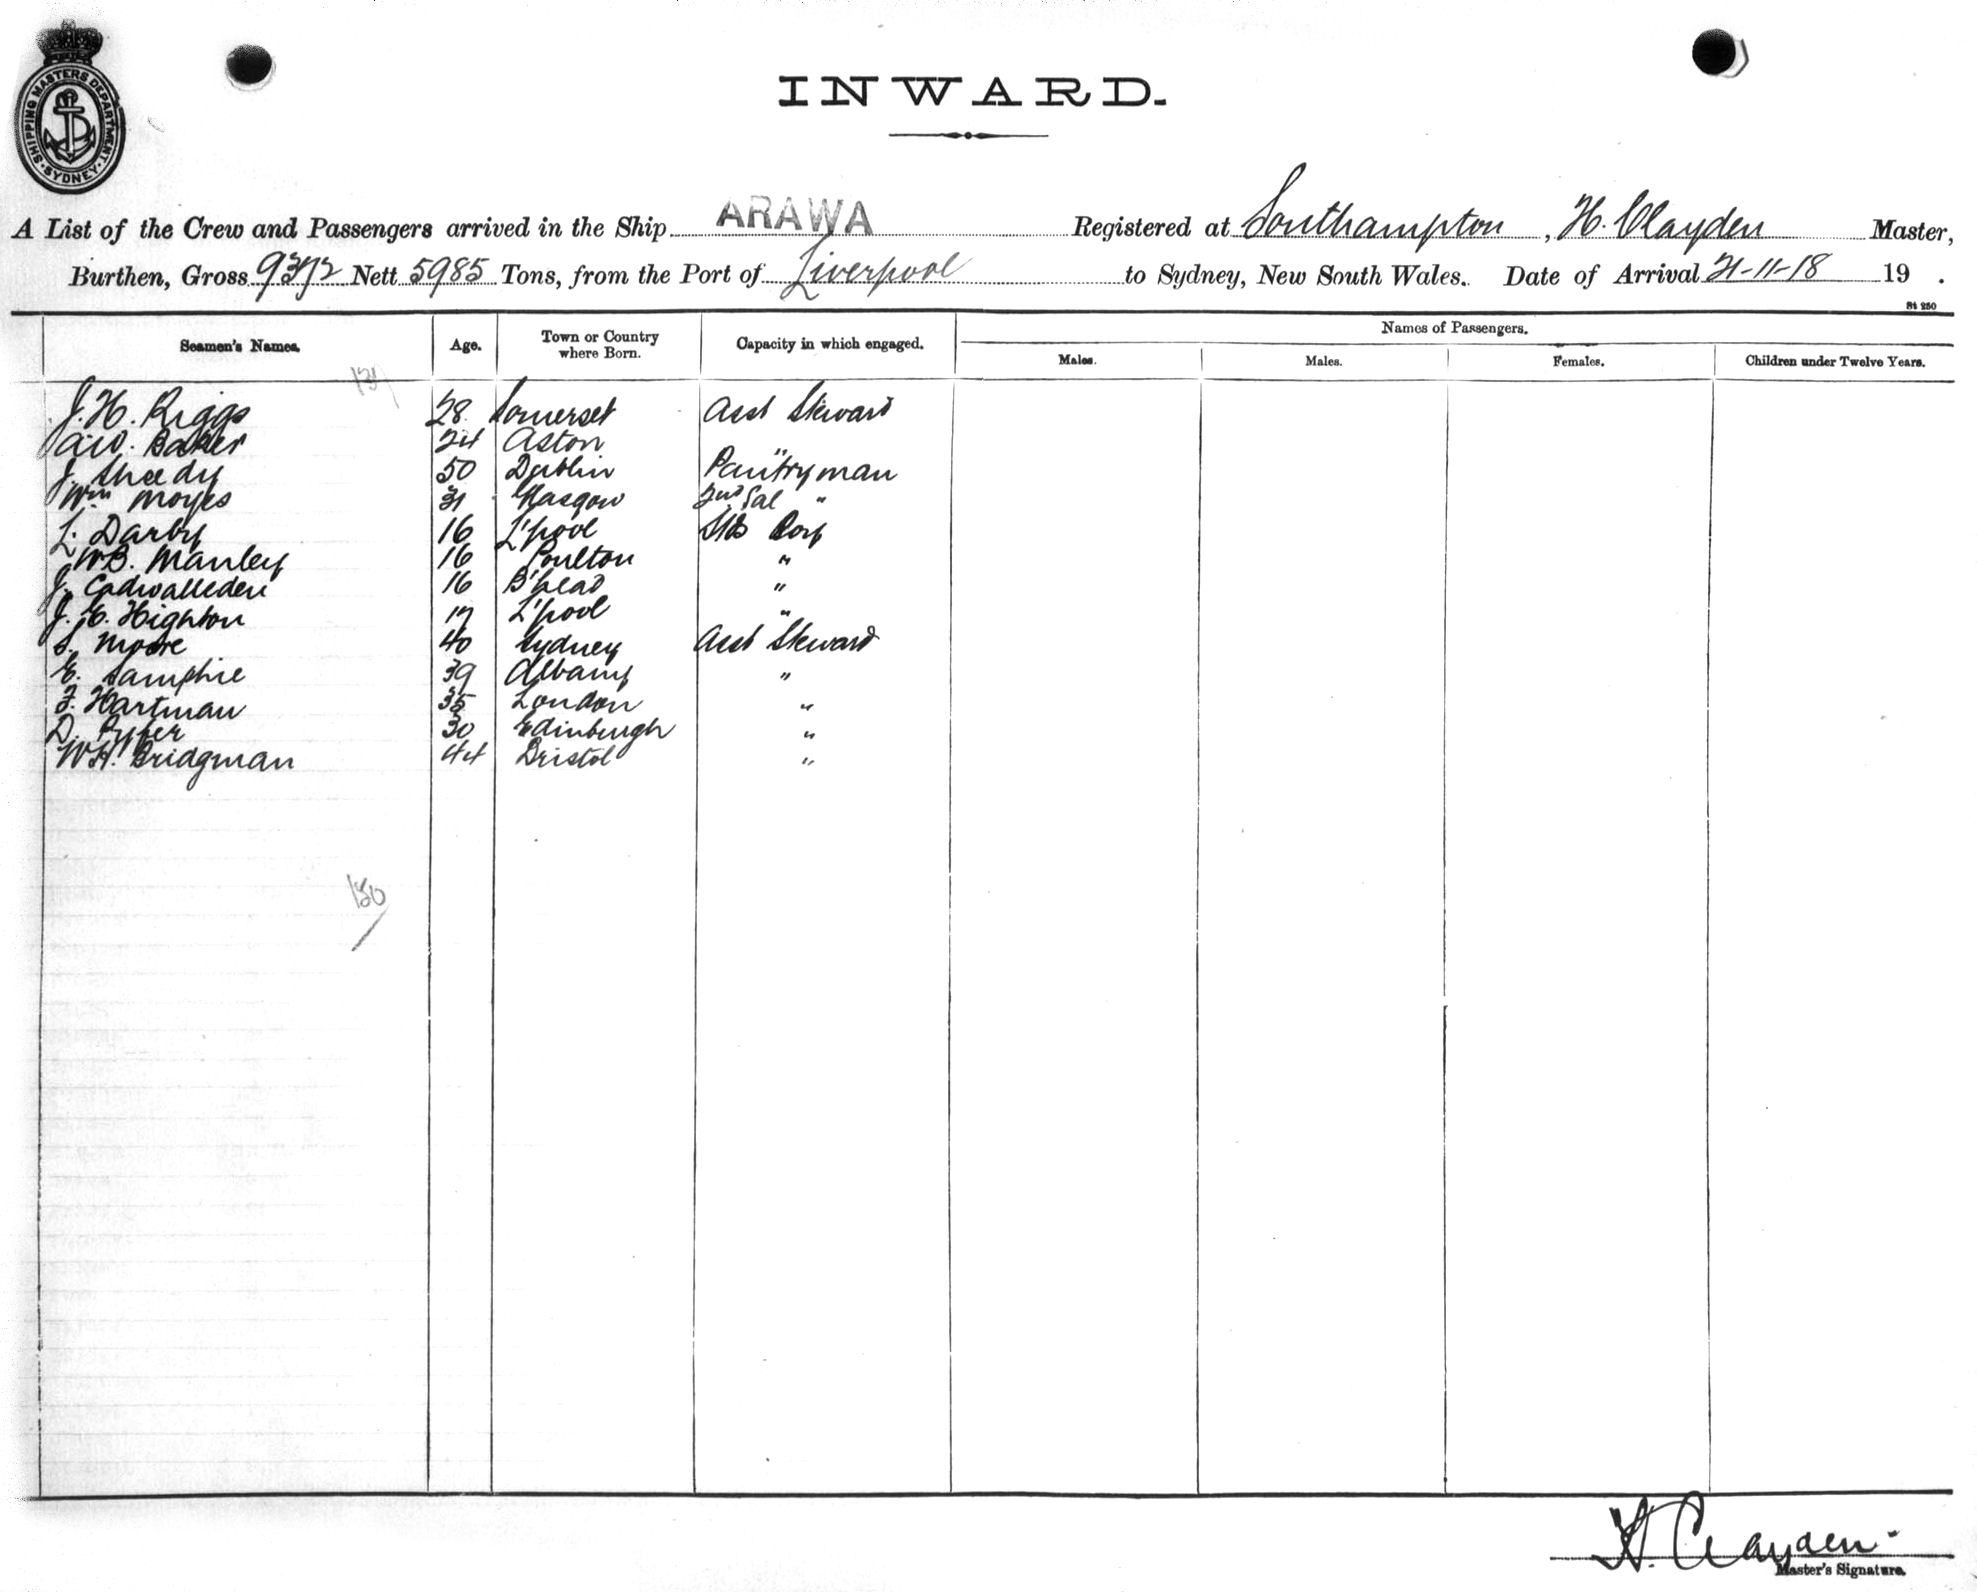 SHIPPING MASTERS DEPARTMENT
SYDNEY
INWARD.
A List of the Crew and Passengers arrived in the Ship ARAWA Registered at Southampton, H. Clayden Master,
Burthen, Gross 9372 Nett 5985 Tons, from the Port of Liverpool to Sydney, New South Wales. Date of Arrival 21-11-18 19 .
St 250
Seamen's Names. Age. Town or Country where Born. Capacity in which engaged. Names of Passengers.
Males. Males. Females. Children under Twelve Years.
131
J. H. Riggs 28 Somerset Asst Steward
A.W. Baker 24 Aston "
J. Sheedy 50 Dublin Pantryman
Wm Moyes 31 Glasgow 2nd Sal "
L. Darby 16 L'pool Stds Boy
W.B. Manley 16 Poulton "
J. Cadwalleder 16 B'head "
J. E. Highton 17 L'pool "
S. Moore 40 Sydney Asst Steward
E. Samphie 39 Albany "
F. Hartman 35 London "
D. Pyper 30 Edinburgh "
W.H. Bridgman 44 Bristol "
130
H. Clayden
Master's Signature.